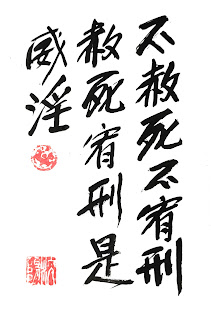 不赦死不宥刑
赦死宥刑是
威淫